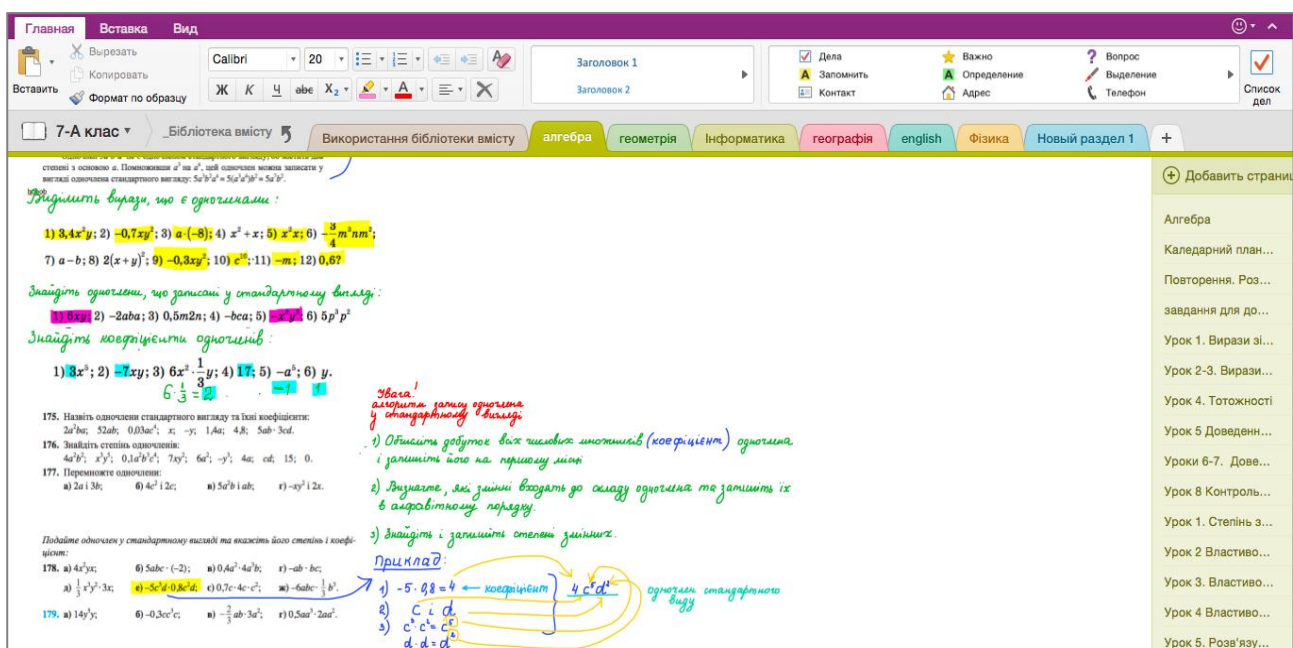 Главная Вставка Вид
Вырезать
Копировать
Вставить Формат по образцу
Calibri 20
Ж К Ч abc X₂ А
Заголовок 1
Заголовок 2
Дела Важно Вопрос
Запомнить Определение Выделение
Контакт Адрес Телефон
Список дел
7-А клас _Бібліотека вмісту Використання бібліотеки вмісту алгебра геометрія Інформатика географія english Фізика Новый раздел 1 +
степені з основою a. Помноживши a³ на a⁴, цей одночлен можна записати у
вигляді одночлена стандартного вигляду: 5a³b²a⁴ = 5(a³a⁴)b² = 5a⁷b².
Виділить вирази, що є одночленами :
1) 3,4x²y; 2) −0,7xy²; 3) a·(−8); 4) x² + x; 5) x²x; 6) −3/4 m³nm²;
7) a − b; 8) 2(x + y)²; 9) −0,3xy²; 10) c¹⁰; 11) −m; 12) 0,6?
Знайдіть одночлени, що записані у стандартному вигляді :
1) 6xy; 2) −2aba; 3) 0,5m2n; 4) −bca; 5) −x²y³; 6) 5p³p²
Знайдіть коефіцієнти одночленів :
1) 3x³; 2) −7xy; 3) 6x² · 1/3 y; 4) 17; 5) −a⁵; 6) y.
6 · 1/3 = 2 −1 1
175. Назвіть одночлени стандартного вигляду та їхні коефіцієнти:
2a²ba; 52ab; 0,03ac⁴; x; −y; 1,4a; 4,8; 5ab · 3cd.
176. Знайдіть степінь одночленів:
4a²b²; x³y⁵; 0,1a²b³c⁴; 7xy²; 6a²; −y³; 4a; cd; 15; 0.
177. Перемножте одночлени:
а) 2a і 3b; б) 4c² і 2c; в) 5a²b і ab; г) −xy² і 2x.
Подайте одночлен у стандартному вигляді та вкажіть його степінь і коефі-
цієнт:
178. а) 4x²yx; б) 5abc · (−2); в) 0,4a² · 4a³b; г) −ab · bc;
д) 1/3 x³y² · 3x; е) −5c³d·0,8c²d; є) 0,7c · 4c · c²; ж) −6abc · 1/3 b³.
179. а) 14y³y; б) −0,3cc³c; в) −2/3 ab · 3a²; г) 0,5aa³ · 2aa².
Увага!
алгоритм запису одночлена
у стандартному вигляді
1) Обчисліть добуток всіх числових множників (коефіцієнт) одночлена
і запишіть його на першому місці
2) Визначте, які змінні входять до складу одночлена та запишіть їх
в алфавітному порядку.
3) Знайдіть і запишіть степені змінних.
Приклад:
1) −5 · 0,8 = 4 ← коефіцієнт 4 c⁵d² одночлен стандартного виду
2) c і d
3) c³ · c² = c⁵
d · d = d²
Добавить страниц
Алгебра
Каледарний план...
Повторення. Роз...
завдання для до...
Урок 1. Вирази зі...
Урок 2-3. Вирази...
Урок 4. Тотожності
Урок 5 Доведенн...
Уроки 6-7. Дове...
Урок 8 Контроль...
Урок 1. Степінь з...
Урок 2 Властиво...
Урок 3. Властиво...
Урок 4 Властиво...
Урок 5. Розв'язу...